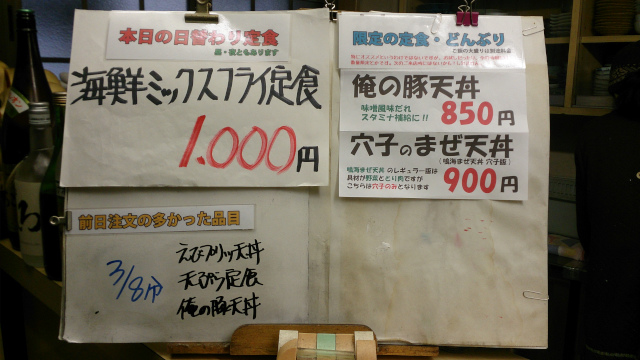 本日の日替わり定食
昼・夜ともあります
海鮮ミックスフライ定食
1.000円
前日注文の多かった品目
3/8分
えびプリッツ天丼
天ぷら定食
俺の豚天丼
限定の定食・どんぶり
ご飯の大盛りは別途料金
俺の豚天丼
味噌風味だれ
スタミナ補給に!!
850円
穴子のまぜ天丼
(鳴海まぜ天丼 穴子版)
鳴海まぜ天丼 のレギュラー版は
具材が野菜ととり肉ですが
こちらは穴子のみとなります
900円